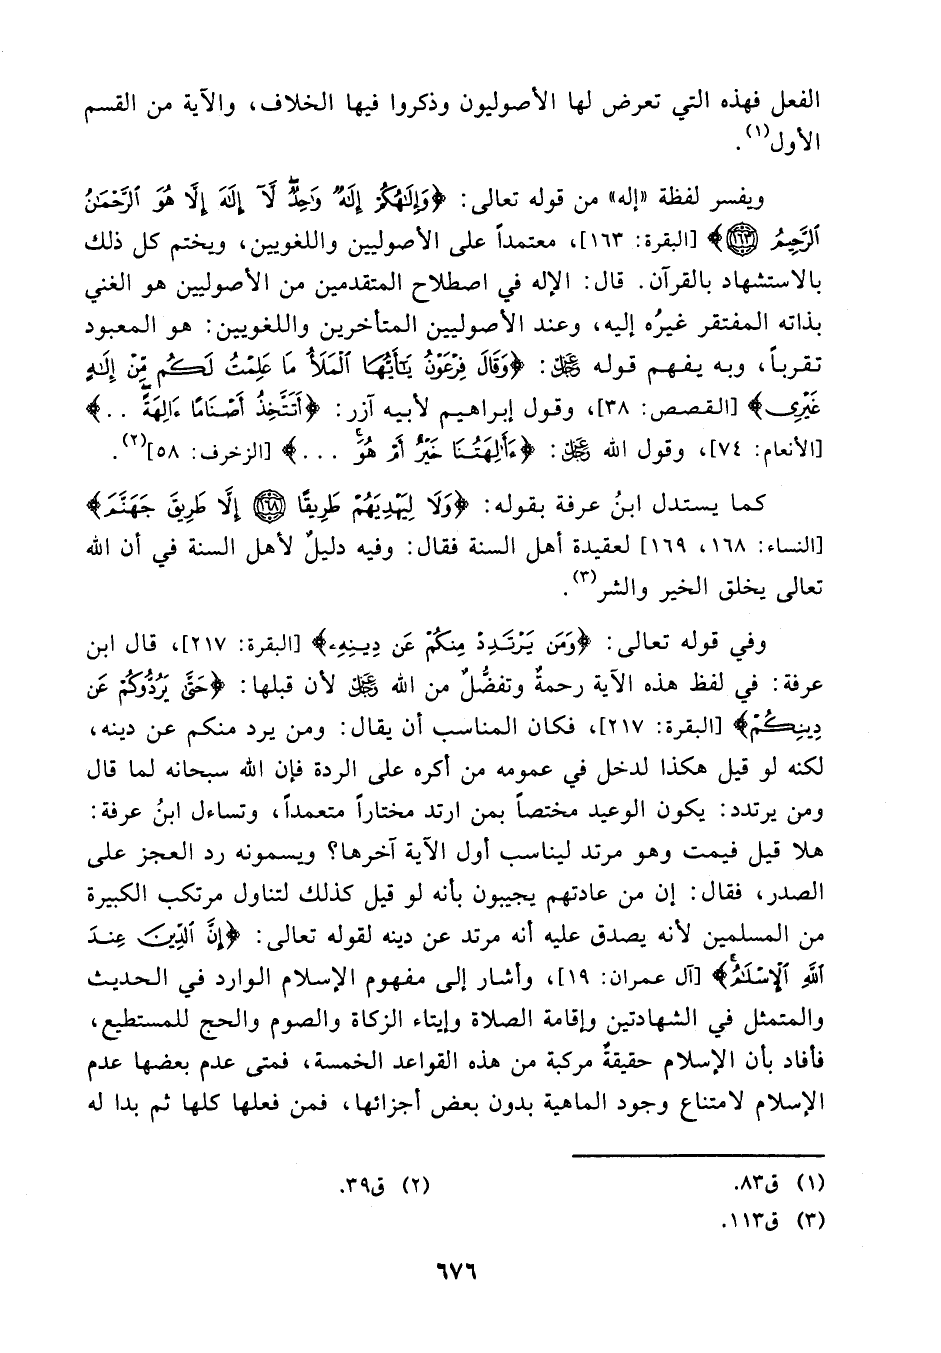 الفعل فهذه التي تعرض لها الأصوليون وذكروا فيها الخلاف، والآية من القسم
الأول(١).
ويفسر لفظة «إله» من قوله تعالى: ﴿وَإِلَٰهُكُمْ إِلَٰهٌ وَٰحِدٌۖ لَّآ إِلَٰهَ إِلَّا هُوَ ٱلرَّحْمَٰنُ
ٱلرَّحِيمُ ١٦٣﴾ [البقرة: ١٦٣]، معتمداً على الأصوليين واللغويين، ويختم كل ذلك
بالاستشهاد بالقرآن. قال: الإله في اصطلاح المتقدمين من الأصوليين هو الغني
بذاته المفتقر غيرُه إليه، وعند الأصوليين المتأخرين واللغويين: هو المعبود
تقرباً، وبه يفهم قوله ﷻ: ﴿وَقَالَ فِرْعَوْنُ يَٰٓأَيُّهَا ٱلْمَلَأُ مَا عَلِمْتُ لَكُم مِّنْ إِلَٰهٍ
غَيْرِى﴾ [القصص: ٣٨]، وقول إبراهيم لأبيه آزر: ﴿أَتَتَّخِذُ أَصْنَامًا ءَالِهَةً ..﴾
[الأنعام: ٧٤]، وقول الله ﷻ: ﴿ءَأَٰلِهَتُنَا خَيْرٌ أَمْ هُوَۚ ...﴾ [الزخرف: ٥٨](٢).
كما يستدل ابنُ عرفة بقوله: ﴿وَلَا لِيَهْدِيَهُمْ طَرِيقًا ١٦٨ إِلَّا طَرِيقَ جَهَنَّمَ﴾
[النساء: ١٦٨، ١٦٩] لعقيدة أهل السنة فقال: وفيه دليلٌ لأهل السنة في أن الله
تعالى يخلق الخير والشر(٣).
وفي قوله تعالى: ﴿وَمَن يَرْتَدِدْ مِنكُمْ عَن دِينِهِۦ﴾ [البقرة: ٢١٧]، قال ابن
عرفة: في لفظ هذه الآية رحمةٌ وتفضُّلٌ من الله ﷻ لأن قبلها: ﴿حَتَّىٰ يَرُدُّوكُمْ عَن
دِينِكُمْ﴾ [البقرة: ٢١٧]، فكان المناسب أن يقال: ومن يرد منكم عن دينه،
لكنه لو قيل هكذا لدخل في عمومه من أكره على الردة فإن الله سبحانه لما قال
ومن يرتدد: يكون الوعيد مختصاً بمن ارتد مختاراً متعمداً، وتساءل ابنُ عرفة:
هلا قيل فيمت وهو مرتد ليناسب أول الآية آخرها؟ ويسمونه رد العجز على
الصدر، فقال: إن من عادتهم يجيبون بأنه لو قيل كذلك لتناول مرتكب الكبيرة
من المسلمين لأنه يصدق عليه أنه مرتد عن دينه لقوله تعالى: ﴿إِنَّ ٱلدِّينَ عِندَ
ٱللَّهِ ٱلْإِسْلَٰمُۗ﴾ [آل عمران: ١٩]، وأشار إلى مفهوم الإسلام الوارد في الحديث
والمتمثل في الشهادتين وإقامة الصلاة وإيتاء الزكاة والصوم والحج للمستطيع،
فأفاد بأن الإسلام حقيقةٌ مركبة من هذه القواعد الخمسة، فمتى عدم بعضها عدم
الإسلام لامتناع وجود الماهية بدون بعض أجزائها، فمن فعلها كلها ثم بدا له
(١) ق٨٣. (٢) ق٣٩.
(٣) ق١١٣.
٦٧٦